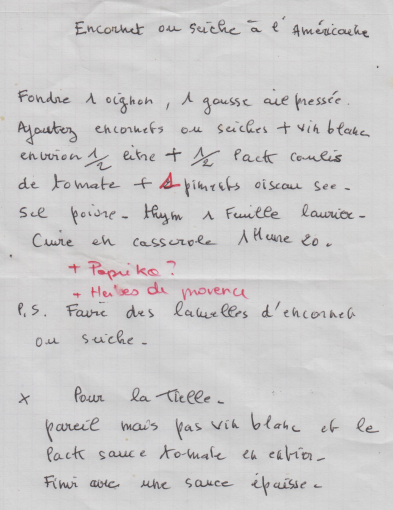 Encornet ou seiche à l'Américaine
Fondre 1 oignon, 1 gousse ail pressée.
Ajoutez encornets ou seiches + vin blanc
environ 1/2 litre + 1/2 Pack coulis
de tomate + piments oiseau sec -
Sel poivre - thym 1 Feuille laurier -
Cuire en casserole 1 Heure 20.
+ Paprika ?
+ Herbes de provence
P.S. Faire des lamelles d'encornet
ou seiche -
x Pour la Tielle -
pareil mais pas vin blanc et le
Pack sauce tomate en entier -
Finir avec une sauce épaisse -